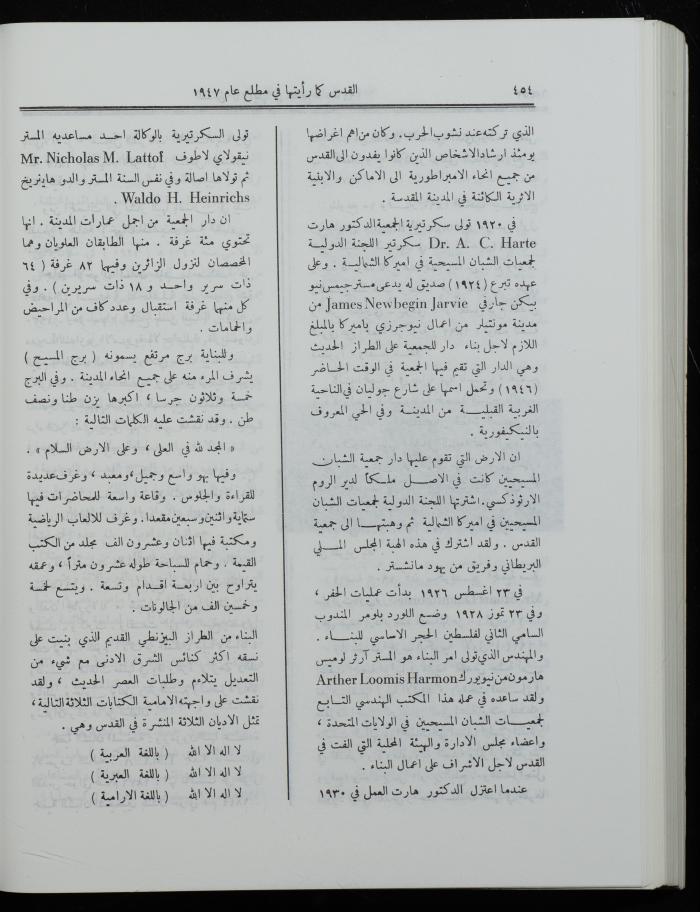 ٤٥٤
القدس كما رأيتها في مطلع عام ١٩٤٧
الذي تركته عند نشوب الحرب. وكان من اهم اغراضها
يومئذ ارشاد الاشخاص الذين كانوا يفدون الى القدس
من جميع انحاء الامبراطورية الى الاماكن والابنية
الاثرية الكائنة في المدينة المقدسة .
في ١٩٢٠ تولى سكرتيرية الجمعية الدكتور هارت
Dr. A. C. Harte سكرتير اللجنة الدولية
لجمعيات الشبان المسيحية في اميركا الشمالية . وعلى
عهده تبرع (١٩٢٤) صديق له يدعى مستر جيمس نيو
بيكن جارفي James Newbegin Jarvie من
مدينة مونتيلر من اعمال نيوجرزي باميركا بالمبلغ
اللازم لاجل بناء دار للجمعية على الطراز الحديث
وهي الدار التي تقيم فيها الجمعية في الوقت الحاضر
(١٩٤٦) وتحمل اسمها على شارع جوليان في الناحية
الغربية القبلية من المدينة وفي الحي المعروف
بالنيكيفورية .
ان الارض التي تقوم عليها دار جمعية الشبان
المسيحيين كانت في الاصل ملكاً لدير الروم
الارثوذكسي. اشترتها اللجنة الدولية لجمعيات الشبان
المسيحيين في اميركا الشمالية ثم وهبتها الى جمعية
القدس . ولقد اشترك في هذه الهبة المجلس الملي
البريطاني وفريق من يهود مانشستر .
في ٢٣ اغسطس ١٩٢٦ بدأت عمليات الحفر ،
وفي ٢٣ تموز ١٩٢٨ وضع اللورد بلومر المندوب
السامي الثاني لفلسطين الحجر الاساسي للبناء .
والمهندس الذي تولى امر البناء هو المستر آرثر لوميس
هارمون من نيويورك Arther Loomis Harmon
ولقد ساعده في عمله هذا المكتب الهندسي التابع
لجمعيات الشبان المسيحيين في الولايات المتحدة ،
واعضاء مجلس الادارة والهيئة المحلية التي الفت في
القدس لاجل الاشراف على اعمال البناء .
عندما اعتزل الدكتور هارت العمل في ١٩٣٠
تولى السكرتيرية بالوكالة احد مساعديه المستر
نيقولاي لاطوف Mr. Nicholas M. Lattof
ثم تولاها اصالة وفي نفس السنة المستر والدو هاينريخ
Waldo H. Heinrichs .
ان دار الجمعية من اجمل عمارات المدينة . انها
تحتوي مئة غرفة . منها الطابقان العلويان وهما
المخصصان لنزول الزائرين وفيهما ٨٢ غرفة ( ٦٤
ذات سرير واحد و ١٨ ذات سريرين ) . وفي
كل منهما غرفة استقبال وعدد كاف من المراحيض
والحمامات .
وللبناية برج مرتفع يسمونه ( برج المسيح )
يشرف المرء منه على جميع انحاء المدينة . وفي البرج
خمسة وثلاثون جرسا ، اكبرها يزن طنا ونصف
طن . وقد نقشت عليه الكلمات التالية :
« المجد لله في العلى ، وعلى الارض السلام » .
وفيها بهو واسع وجميل ، ومعبد ، وغرف عديدة
للقراءة والجلوس . وقاعة واسعة للمحاضرات فيها
ستماية واثنين وسبعين مقعدا. وغرف للالعاب الرياضية
ومكتبة فيها اثنان وعشرون الف مجلد من الكتب
القيمة . وحمام للسباحة طوله عشرون متراً ، وعمقه
يتراوح بين اربعة اقدام وتسعة . ويتسع لخمسة
وخمسين الف من الجالونات .
البناء من الطراز البيزنطي القديم الذي بنيت على
نسقه اكثر كنائس الشرق الادنى مع شيء من
التعديل يتلاءم وطلبات العصر الحديث ، ولقد
نقشت على واجهته الامامية الكتابات الثلاثة التالية ،
تمثل الأديان الثلاثة المنشرة في القدس وهي .
لا اله الا الله ( باللغة العربية )
لا اله الا الله ( باللغة العبرية )
لا اله الا الله ( باللغة الارامية )